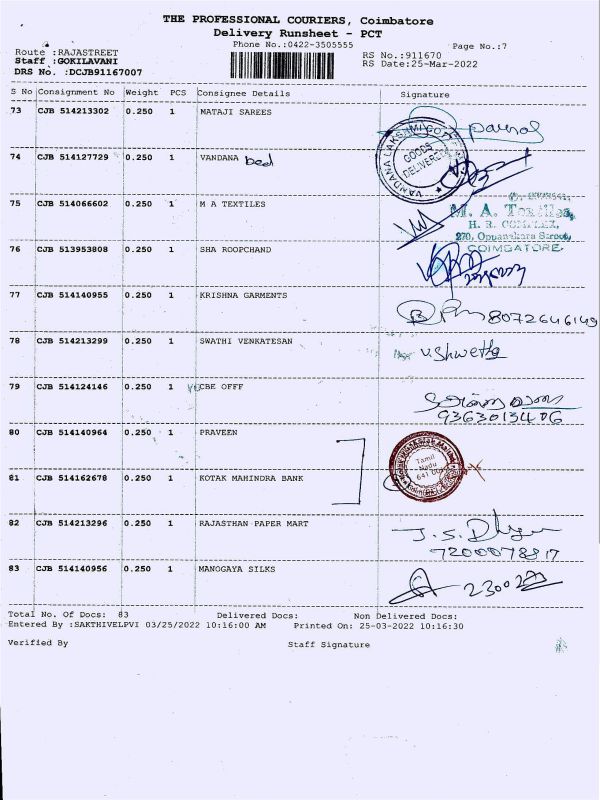 THE PROFESSIONAL COURIERS, Coimbatore
Delivery Runsheet - PCT
Phone No.:0422-3505555
Page No.:7
Route :RAJASTREET
RS No.:911670
Staff :GOKILAVANI
RS Date:25-Mar-2022
DRS No. :DCJB91167007
S No Consignment No Weight PCS Consignee Details Signature
73 CJB 514213302 0.250 1 MATAJI SAREES
74 CJB 514127729 0.250 1 VANDANA bed
GOODS DELIVERED
75 CJB 514066602 0.250 1 M A TEXTILES
M. A. Textiles,
H. R. COMPLEX,
COIMBATORE.
76 CJB 513953808 0.250 1 SHA ROOPCHAND
77 CJB 514140955 0.250 1 KRISHNA GARMENTS
8072646149
78 CJB 514213299 0.250 1 SWATHI VENKATESAN
V. Shwetha
79 CJB 514124146 0.250 1 CBE OFFF
80 CJB 514140964 0.250 1 PRAVEEN
Tamil
Nadu
81 CJB 514162678 0.250 1 KOTAK MAHINDRA BANK
82 CJB 514213296 0.250 1 RAJASTHAN PAPER MART
83 CJB 514140956 0.250 1 MANOGAYA SILKS
Total No. Of Docs: 83 Delivered Docs: Non Delivered Docs:
Entered By :SAKTHIVELPVI 03/25/2022 10:16:00 AM Printed On: 25-03-2022 10:16:30
Verified By Staff Signature